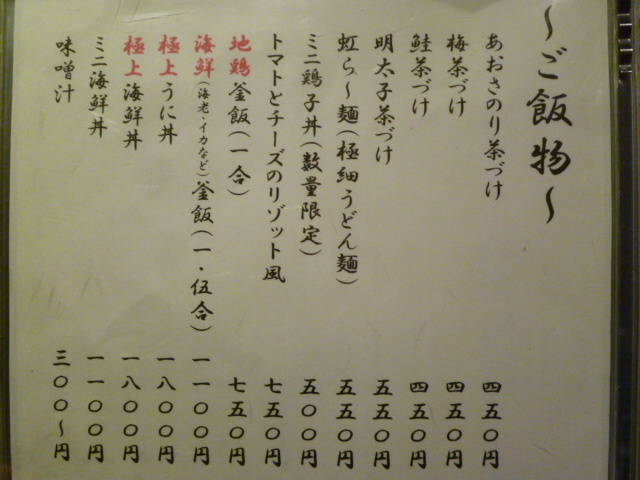 ～ご飯物～
あおさのり茶づけ 四五〇円
梅茶づけ 四五〇円
鮭茶づけ 四五〇円
明太子茶づけ 五五〇円
虹ら～麺(極細うどん麺) 五五〇円
ミニ鶏子丼(数量限定) 五〇〇円
トマトとチーズのリゾット風 七五〇円
地鶏釜飯(一合) 七五〇円
海鮮(海老・イカなど)釜飯(一・伍合) 一一〇〇円
極上うに丼 一八〇〇円
極上海鮮丼 一八〇〇円
ミニ海鮮丼 一一〇〇円
味噌汁 三〇〇～円